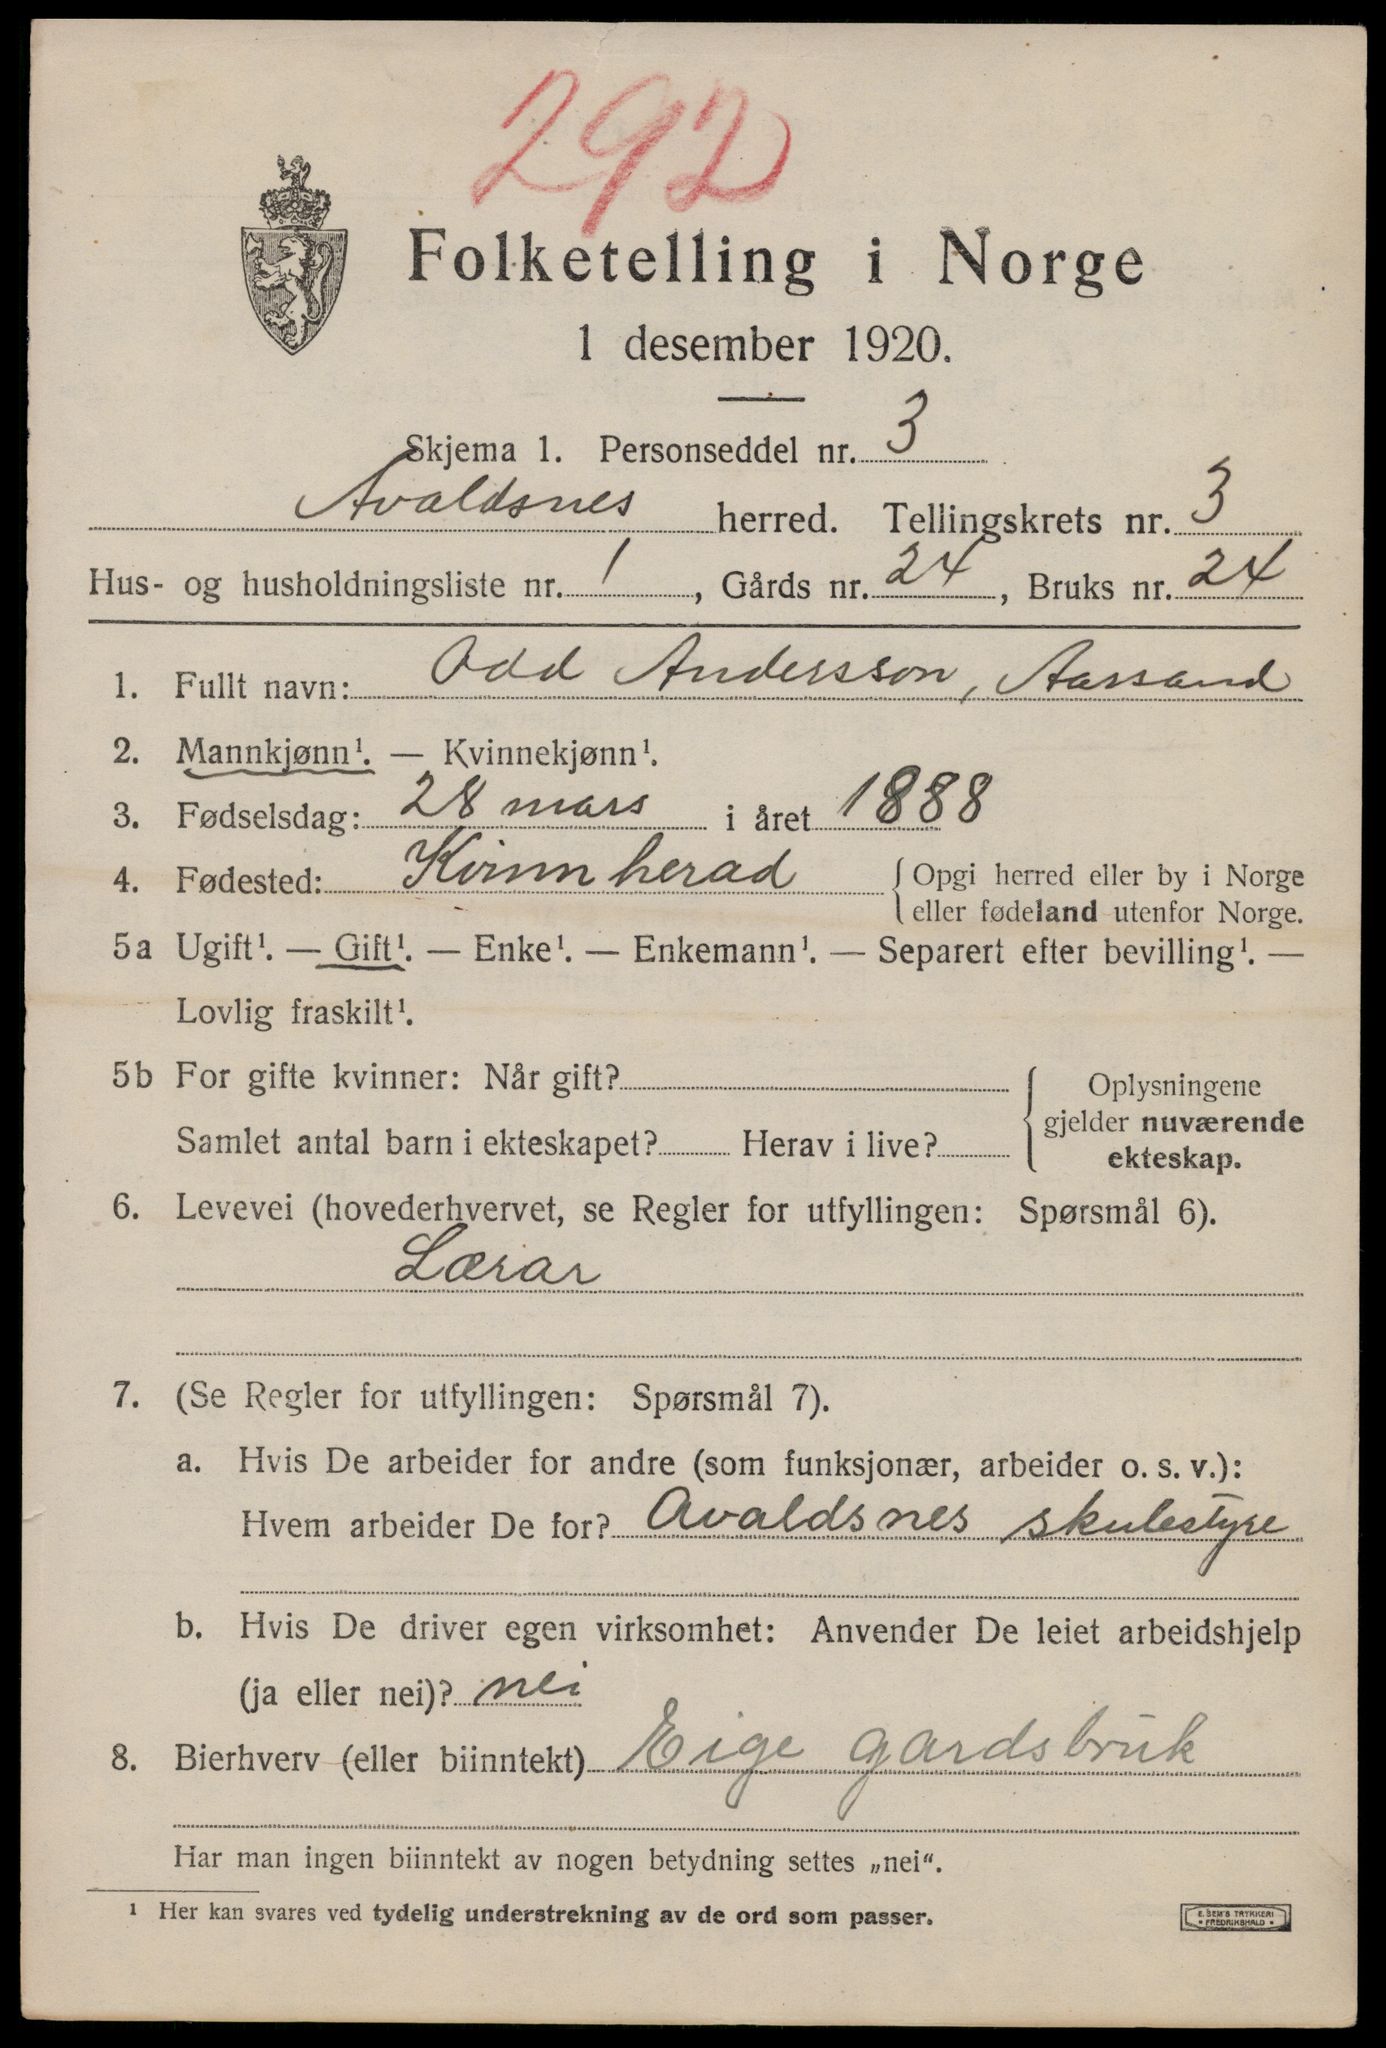 292
Folketelling i Norge
1 desember 1920.
Skjema 1. Personseddel nr. 3
Avaldsnes herred. Tellingskrets nr. 3
Hus- og husholdningsliste nr. 1, Gårds nr. 24, Bruks nr. 24
1. Fullt navn: Odd Andersson, Aarsand
2. Mannkjønn¹. — Kvinnekjønn¹.
3. Fødselsdag: 28 mars i året 1888
4. Fødested: Kvinnherad { Opgi herred eller by i Norge
eller fødeland utenfor Norge.
5a Ugift¹. — Gift¹. — Enke¹. — Enkemann¹. — Separert efter bevilling¹. —
Lovlig fraskilt¹.
5b For gifte kvinner: Når gift?
Samlet antal barn i ekteskapet? Herav i live?
Oplysningene
gjelder nuværende
ekteskap.
6. Levevei (hovederhvervet, se Regler for utfyllingen: Spørsmål 6).
Lærar
7. (Se Regler for utfyllingen: Spørsmål 7).
a. Hvis De arbeider for andre (som funksjonær, arbeider o. s. v.):
Hvem arbeider De for? Avaldsnes skulestyre
b. Hvis De driver egen virksomhet: Anvender De leiet arbeidshjelp
(ja eller nei)? nei
8. Bierhverv (eller biinntekt) Eige gardsbruk
Har man ingen biinntekt av nogen betydning settes „nei“.
¹ Her kan svares ved tydelig understrekning av de ord som passer.
E. SEM'S TRYKKERI
• FREDRIKSHALD •